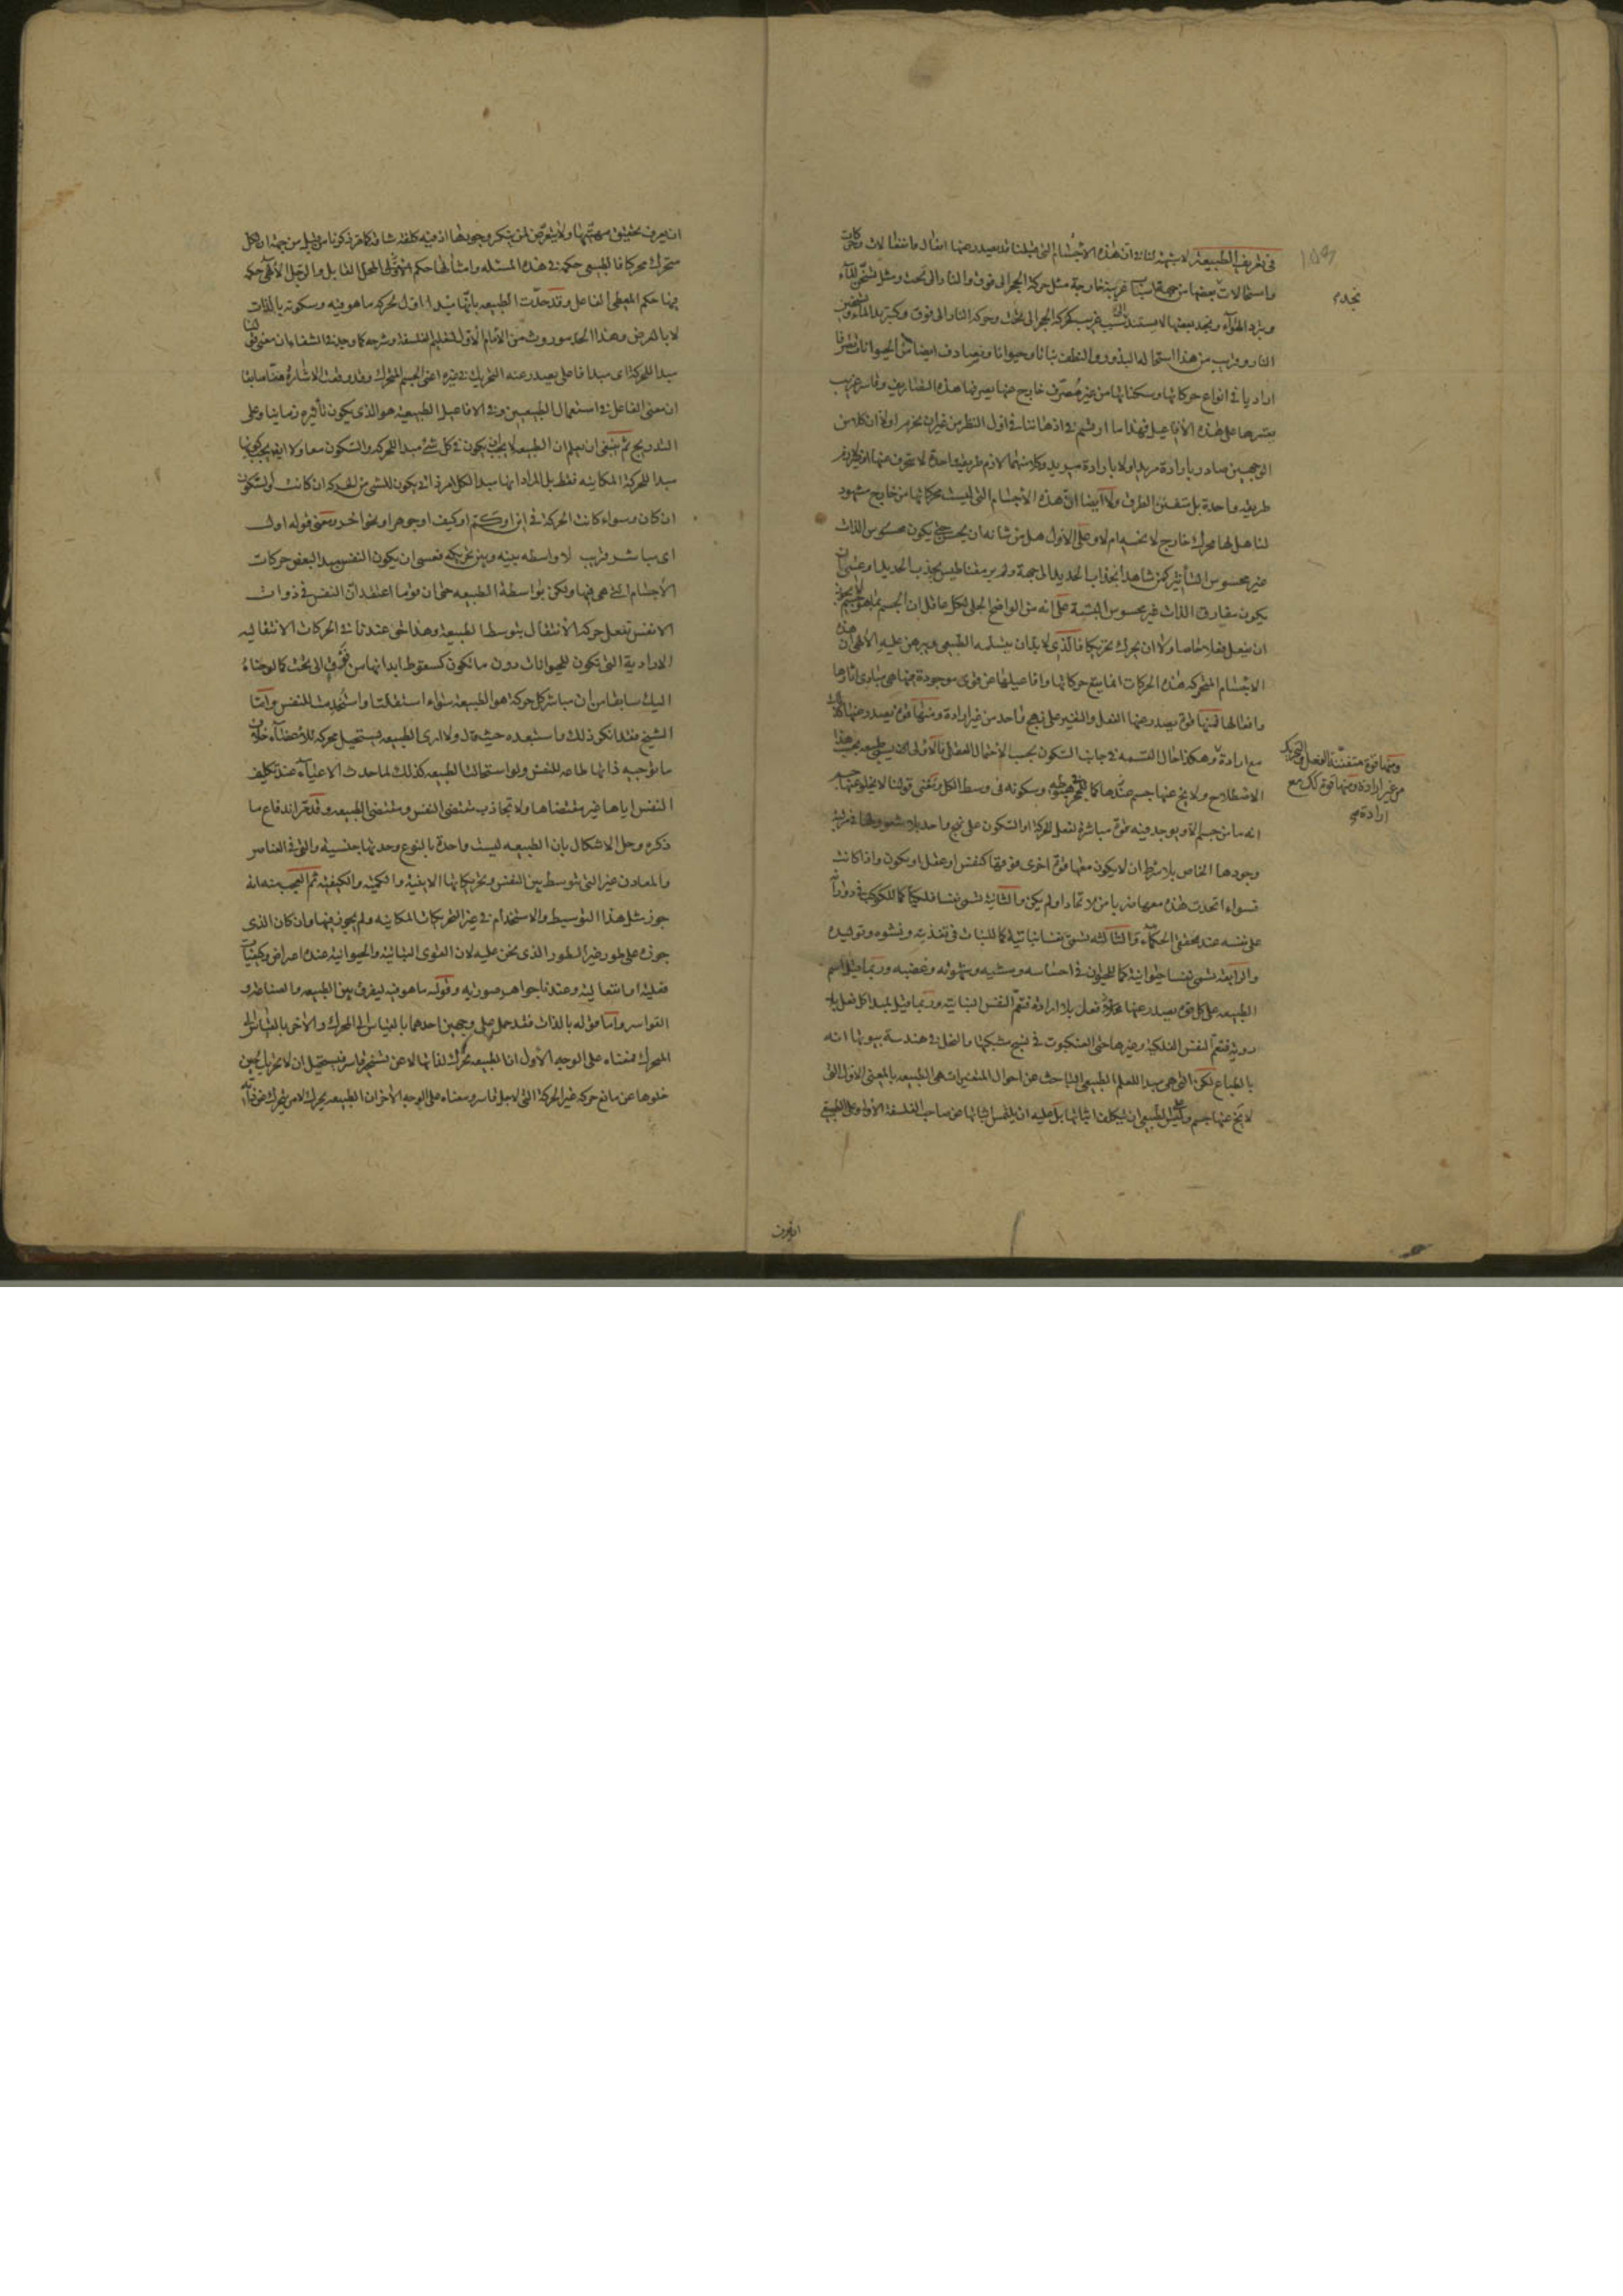 فى تعريف الطبيعة لا شبهة لنا فى ان هذه الاجسام التى قبلنا قد يصدر عنها افعال وانفعالات وحركات
واستحالات بعضها من جهة اسباب غريبة خارجة مثل حركة الحجر الى فوق والنار الى تحت ومثل تسخن الماء
وبرد الهواء ونجد بعضها لا يستند الى سبب غريب كحركة الحجر الى تحت وحركة النار الى فوق وكتبريد الماء وتسخين
النار وقريب من هذا استحالة البذور والنطف نباتا وحيوانا ونصادف ايضا من الحيوانات تصرفا
اراديا فى انواع حركاتها وسكناتها من غير مصرف خارج عنها يصرفها هذه التصاريف وقاسر غريب
يقسرها على هذه الافاعيل فهذا ما ارتسم فى اذهاننا فى اول النظر من غير ان نحزم اولا ان كلا من
الوجهين صادر بارادة مريد او لا بارادة مريد وكلا منهما لازم طريقة واحدة لا تنحرف عنها او غير لازم
طريقة واحدة بل متفنن الطرق ولا ايضا ان هذه الاجسام التى ليست محركاتها من خارج مشهود
لنا هل لها محرك خارج لا نحسه ام لا وعلى الاول هل من شانه ان يحس حتى يكون محسوس الذات
غير محسوس التاثير كمن شاهد انجذاب الحديد الى جهة ولم ير مغناطيس يجذب الحديد او عسى ان
يكون مفارق الذات غير محسوس البتة على انه من الواضح الجلى لكل عاقل ان الجسم بما هو جسم لا يجوز
ان يفعل فعلا خاصا ولا ان يحرك تحريكا فالذى لا بد ان يتسلمه الطبيعى ويبرهن عليه الالهى ان هذه
الاجسام المتحركة هذه الحركات انما يقع حركاتها وافاعيلها عن قوى موجودة فيها هى مبادى اثارها
وافعالها فمنها قوة يصدر عنها الفعل والتغير على نهج واحد من غير ارادة ومنها قوة يصدر عنها كذلك
مع ارادة وهكذا حال القسمة فى جانب السكون بحسب الاحتمال العقلى فالاولى يسمى طبيعة بحسب هذا
الاصطلاح ولا يخ عنها جسم عندها كما للحجر فى هبوطه وسكونه فى وسط الكل ونعنى قولنا لا يخلو عنها جسم
انه ما من جسم الا ويوجد فيه قوة مباشرة لفعل الحركة او السكون على نهج واحد بلا شعور لها فى مرتبة
وجودها الخاص بلا شرط ان لا يكون معها قوة اخرى فوقها كنفس او عقل او يكون واذا كانت
فسواء اتحدت هذه معها ضربا من الاتحاد او لم يكن والثانية تسمى نفسا فلكيا كما للكوكب فى دورانه
على نفسه عند محققى الحكماء والثالثة تسمى نفسا نباتية كما للنبات فى تغذيته ونشوه وتوليده
والرابعة تسمى نفسا حيوانية كما للحيوان فى احساسه ومشيه وشهوته وغضبه وربما قيل اسم
الطبيعة على كل قوة يصدر عنها فعل بلا ارادة فتعم النفس النباتية وربما قيل لمبدا كل فعل بلا
روية فتعم النفس الفلكية وغيرها حتى العنكبوت فى نسج شبكتها والنحل فى هندسة بيوتها انه
بالطباع لكن التى هى مبدا للعلم الطبيعى الباحث عن احوال المتغيرات هى الطبيعة بالمعنى الاول التى
لا يخ عنها جسم وليس على الطبيعى ان يتكلف اثباتها بل عليه ان يلتمس اثباتها عن صاحب الفلسفة الاولى وعلى الطبيعى
ومنها قوة متفننة الفعل والتحريك
من غير ارادة ومنها قوة كذلك مع
ارادة
ان يعرف
ان يعرف تحقيق مهيتها ولا يتعرض لمن ينكر وجودها اذ فيه كلفة شاقة كما مر ذكره من قبل من جهة ان لكل
متحرك محركا فالطبيعى حكمه فى هذه المسئلة وامثالها حكم المحل القابل والرجل الالهى حكمه
فيها حكم المعطى الفاعل وقد حدت الطبيعة بانها مبدا اول لحركة ما هو فيه وسكونه بالذات
لا بالعرض وهذا الحد موروث من الامام الاول لتعليم الفلسفة وشرحه كما وجد فى الشفاء ان معنى قولنا
مبدا للحركة اى مبدا فاعلى يصدر عنه التحريك فى غيره اعنى الجسم المتحرك وقد وقعت الاشارة منا سابقا
ان معنى الفاعل فى استعمال الطبيعيين وفى الافاعيل الطبيعية هو الذى يكون تاثيره زمانيا وعلى
التدريج ثم ينبغى ان يعلم ان الطبيعة لا يجب ان يكون فى كل شئ مبدا للحركة والسكون معا ولا ايضا يجب كونها
مبدا للحركة المكانية فقط بل المراد انها مبدا لكل امر ذاتى يكون للشئ من الحركة ان كانت او السكون
ان كان وسواء كانت الحركة فى اين او كم او كيف او جوهر او نحو اخر ومعنى قوله اول
اى مباشر قريب لا واسطه بينه وبين تحريكه فعسى ان يكون النفس مبدا لبعض حركات
الاجسام التى هى فيها ولكن بواسطة الطبيعه حتى ان قوما اعتقدان النفس فى ذوات
الانفس تفعل حركة الانتقال بتوسط الطبيعة وهذا حق عندنا فى الحركات الانتقاليه
الارادية التى تكون للحيوانات دون ما تكون كسقوط ابدانها من فوق الى تحت كما اوضحناه
اليك سابقا من ان مباشر كل حركة هو الطبيعة سواء استقلت او استخدمت للنفس واما
الشيخ فقد انكر ذلك واستبعده حيث قال ولا ارى الطبيعه يستحيل محركة للاعضاء خلاف
ما توجبه ذاتها طاعة للنفس ولو استحالت الطبيعه كذلك لما حدث الاعياء عند تكليف
النفس اياها غير مقتضاها ولا تجاذب مقتضى النفس ومقتضى الطبيعه وقد مر اندفاع ما
ذكره وحل الاشكال بان الطبيعه ليست واحدة بالنوع وحدتها جنسية والتى فى العناصر
والمعادن غير التى بتوسط بين النفس وتحريكاتها الاينية والكمية والكيفية ثم العجب منه انه
جوز مثل هذا التوسيط والاستخدام فى غير التحريكات المكانيه ولم يجوز فيها وان كان الذى
جوزه على طور غير الطور الذى نحن عليه لان القوى النباتية والحيوانية عنده اعراض وكيفيات
فعلية او انفعالية وعندنا جواهر صورية وقوله ما هو فيه ليفرق بين الطبيعه والصناعة و
القواسر واما قوله بالذات فقد حمل على وجهين احدهما بالقياس الى المحرك والاخر بالقياس الى
المتحرك فمعناه على الوجه الاول ان الطبيعه تحرك لذاتها لا عن تسخير قاسر فيستحيل ان لا تحرك حين
خلوها عن مانع حركة غير الحركة التى لاجل قاسر ومعناه على الوجه الاخر ان الطبيعه يحرك لا من يتحرك عن ذاته